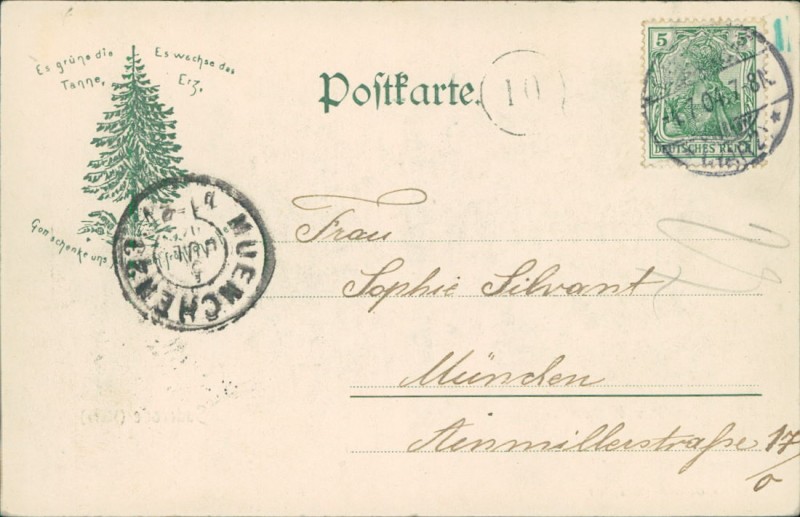 Es grüne die
Tanne,
Es wachse das
Erz,
Gott schenke uns
Postkarte.
10
5 5
DEUTSCHES REICH
7-8N
MUENCHEN
Frau
Sophie Silvant
München
Ainmillerstraße 17/
0